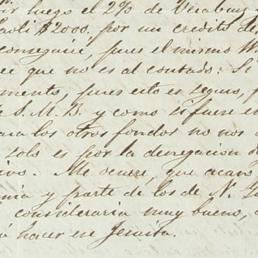 luego el 2% de Veraguas
$2000. por un credito de
conseguire, pues el mismo
ce que no es al contado: Si
mento, pues esto es seguro,
S. M. B. y como si fuere en
ara los otros fondos no nos
solo es por la denegacion d
ivo. Me ocurre, que acaso
nia y parte de los de N.
consideraria muy bueno,
á hacer me